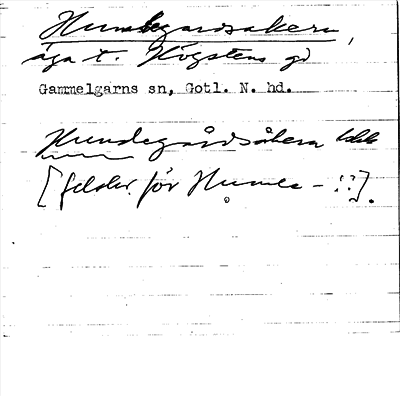 Hundegardsakern,
äga t. Högstens gd
Gammelgarns sn, Gotl. N. hd.
Hundegårdsåkern
[felskr. för Humle- ?].